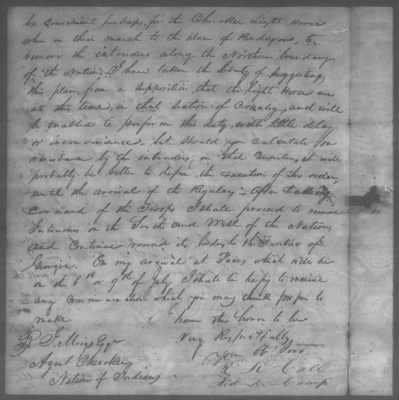 be convenient perhaps, for the Cherokee Light Horse
when on their march to the place of Rendezvous, to
remove the intruders along the Northern boundary
of the Nation. I have taken the liberty of suggesting
this plan, from a supposition, that the Light Horse are
at this time, in that section of Country, and will
be enabled to perform this duty, with little delay
or inconvenience, but should you calculate on
resistance by the intruders, in that Quarter, it will
probably be better to defer the execution of this order,
until the arrival of the Regulars. After taking
command of the Troops I shall proceed to remove
Intruders on the South and West of the Nation,
and continue round its borders to the Frontier of
Georgia. On my arrival at which will be
on the 8th or 9th of July, I shall be happy to receive
any communication which you may think proper to
make
I have the honor to be
Very Respectfully
Your Ob. Servt.
R. K. Call
Aid D. Camp
Agent Cherokee
Nation of Indians